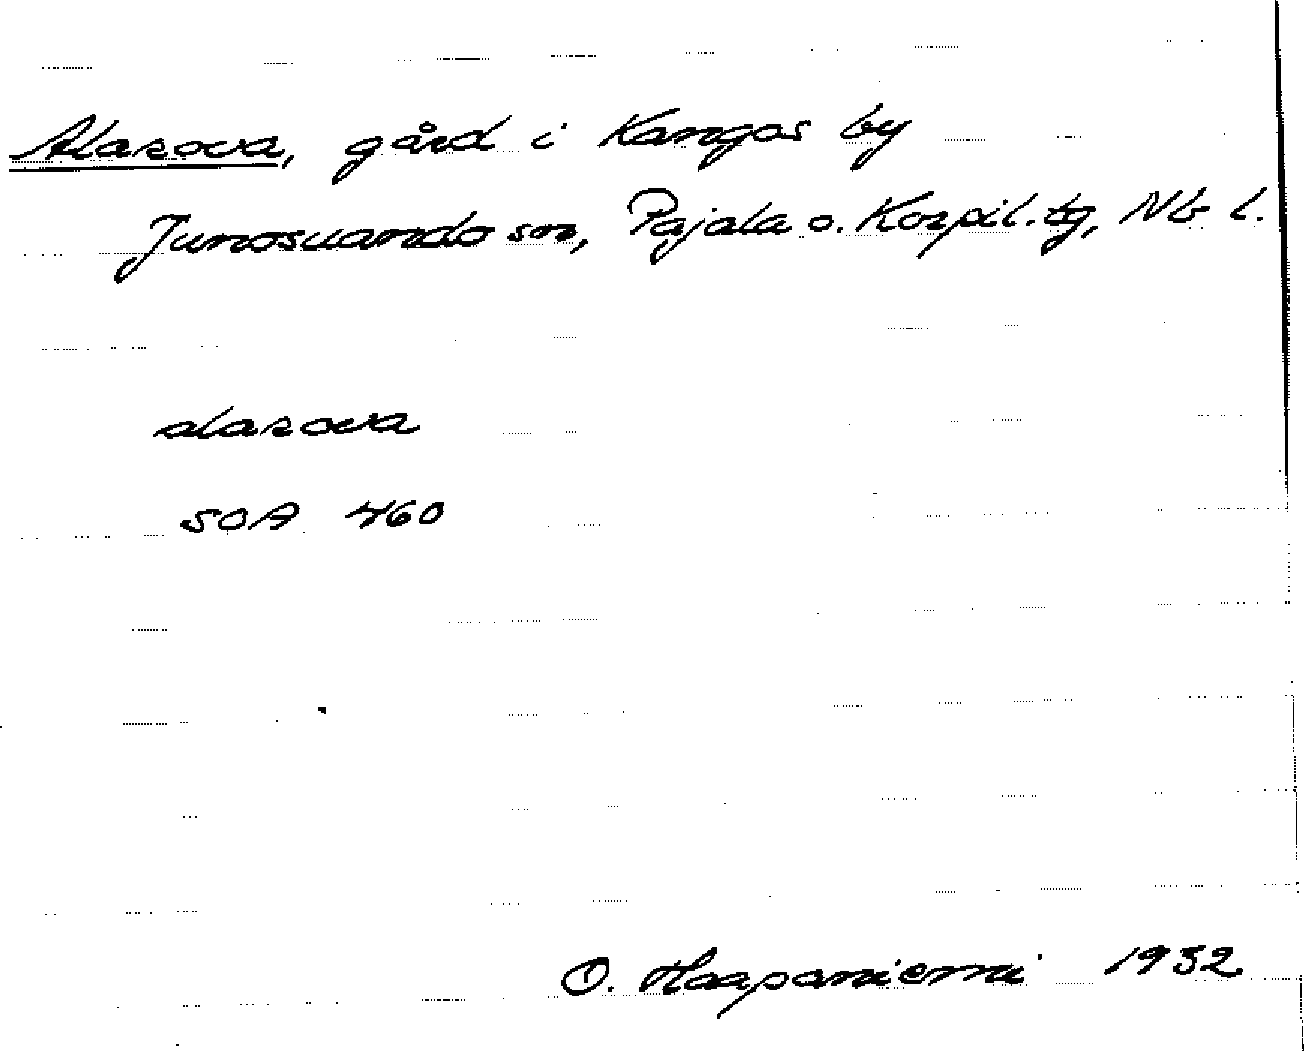 Alarova, gård i Kangos by
Junosuando sn, Pajala o. Korpil. tg, Nb l.
alarova
SOA 460
O. Haapaniemi 1932